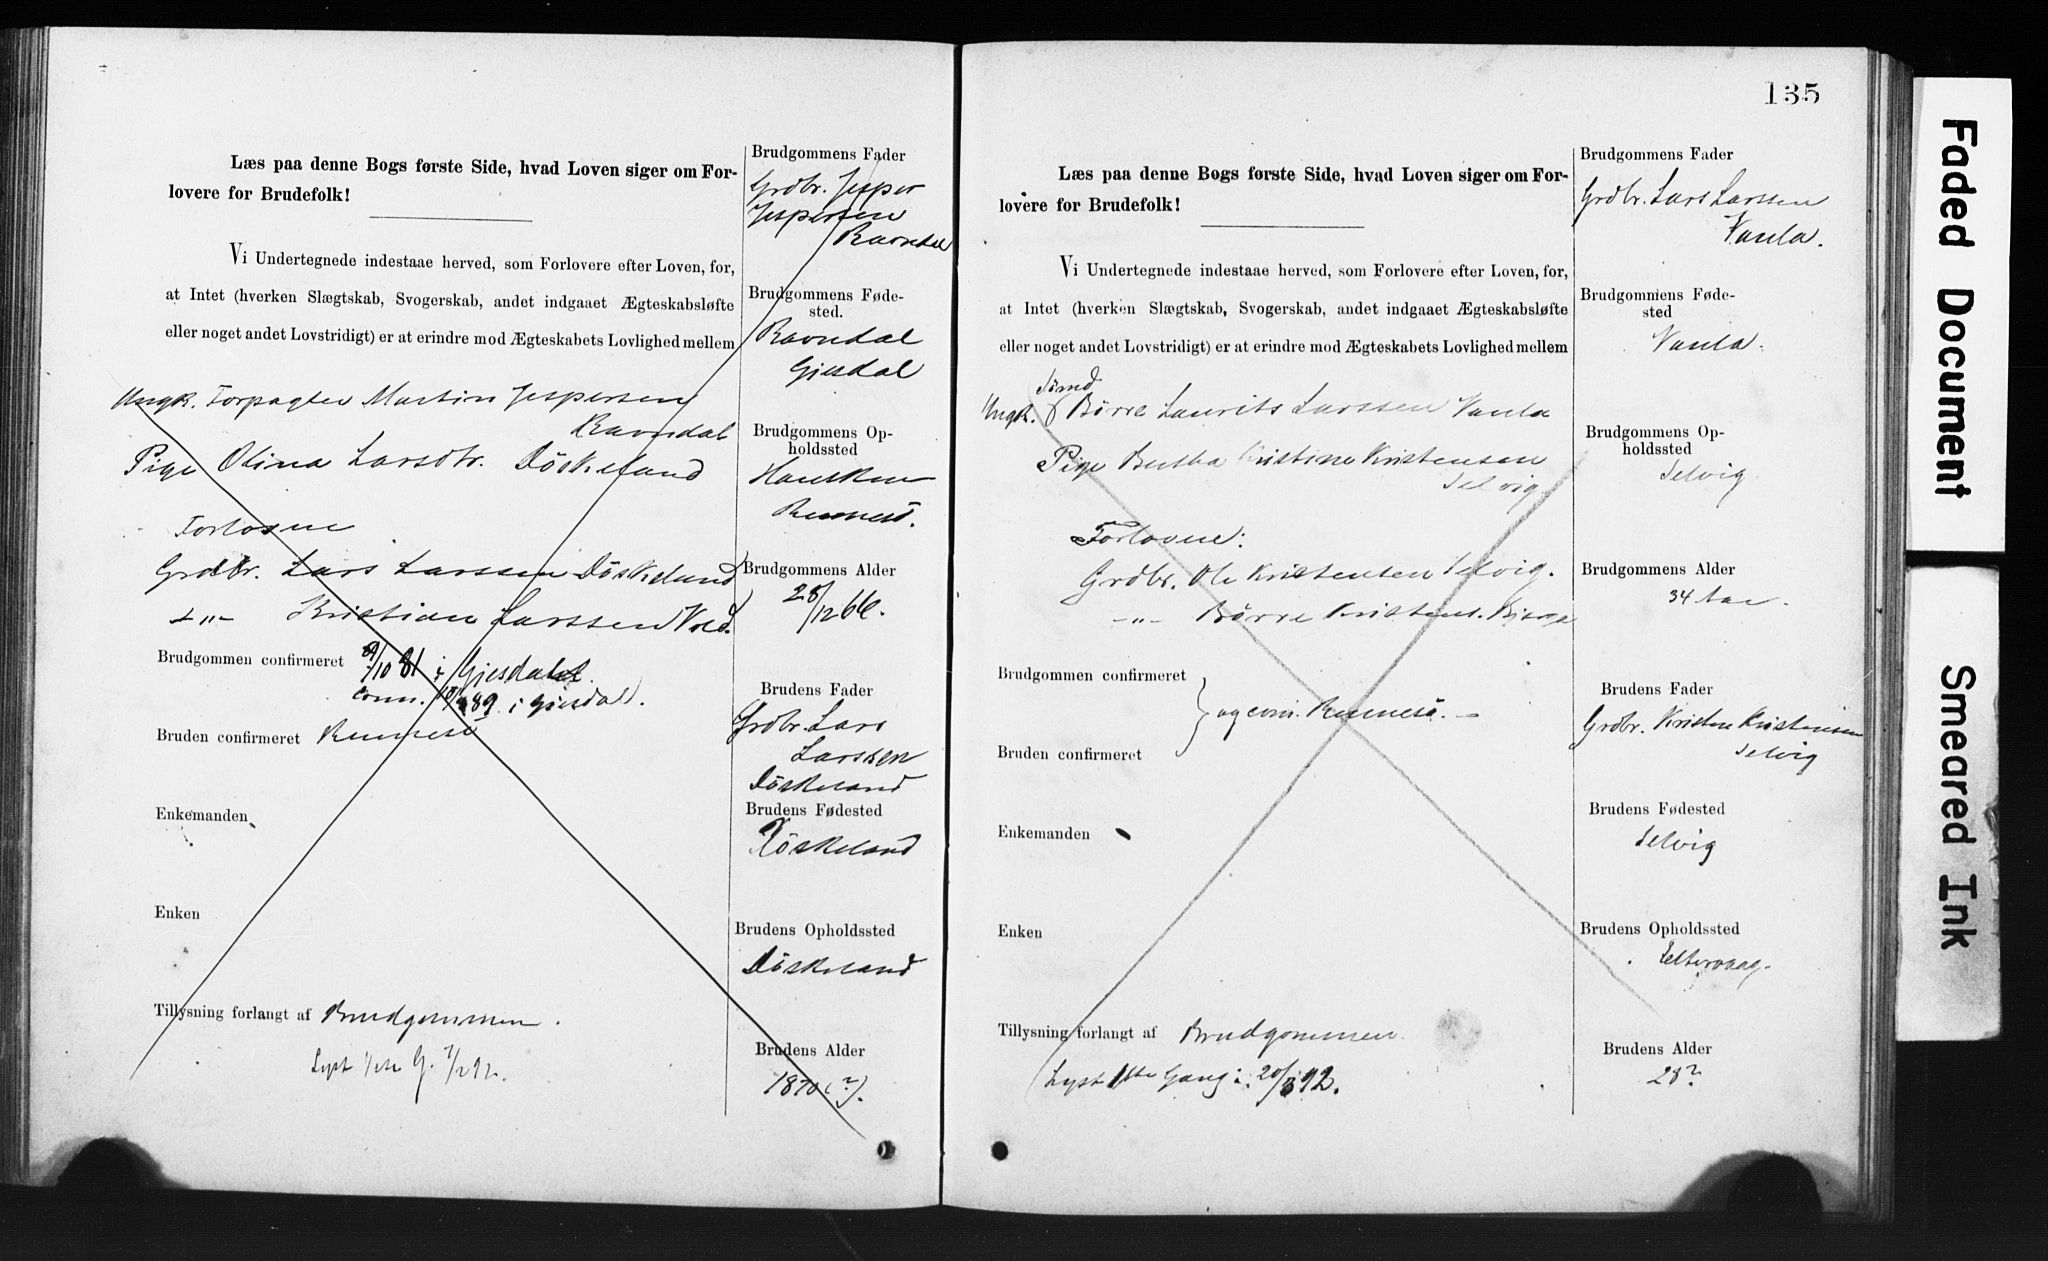 Læs paa denne Bogs første Side, hvad Loven siger om For-
lovere for Brudefolk!
Vi Undertegnede indestaae herved, som Forlovere efter Loven, for,
at Intet (hverken Slægtskab, Svogerskab, andet indgaaet Ægteskabsløfte
eller noget andet Lovstridigt) er at erindre mod Ægteskabets Lovlighed mellem
Ungk. Forpagter Martin Jespersen
Ravndal
Pige Olina Larsdtr. Döskeland
Forlovne
Grdbr. Lars Larssen Döskeland
Kristian Larssen
Brudgommen confirmeret 9/10 81 i Gjesdal.
comm. i Gjesdal.
Bruden confirmeret Rennesö
Enkemanden
Enken
Tillysning forlangt af Brudgommen.
Lyst 1ste G.
Brudgommens Fader
Grdbr. Jesper
Jespersen
Ravndal
Brudgommens Føde-
sted.
Ravndal
Gjesdal
Brudgommens Op-
holdssted
Rennesö.
Brudgommens Alder
28/12 66.
Brudens Fader
Grdbr. Lars
Larssen
Döskeland
Brudens Fødested
Döskeland
Brudens Opholdssted
Döskeland
Brudens Alder
1870(?).
135
Læs paa denne Bogs første Side, hvad Loven siger om For-
lovere for Brudefolk!
Vi Undertegnede indestaae herved, som Forlovere efter Loven, for,
at Intet (hverken Slægtskab, Svogerskab, andet indgaaet Ægteskabsløfte
eller noget andet Lovstridigt) er at erindre mod Ægteskabets Lovlighed mellem
Sömd
Ungk. Börre Laurits Larssen Vaula
Pige Bertha Kristine Kristensen
Selvig.
Forlovne:
Grdbr. Ole Kristensen Selvig.
-"- Börre Kristens.
Brudgommen confirmeret
og com. Rennesö.
Bruden confirmeret
Enkemanden
Enken
Tillysning forlangt af Brudgommen.
Lyst 1ste Gang: 20/3 92.
Brudgommens Fader
Grdbr. Lars Larssen
Vaula.
Brudgommens Føde-
sted
Vaula.
Brudgommens Op-
holdssted
Selvig
Brudgommens Alder
34 Aar.
Brudens Fader
Grdbr. Kristen Kristensen
Selvig
Brudens Fødested
Selvig
Brudens Opholdssted
Brudens Alder
28?
Faded Document
Smeared Ink